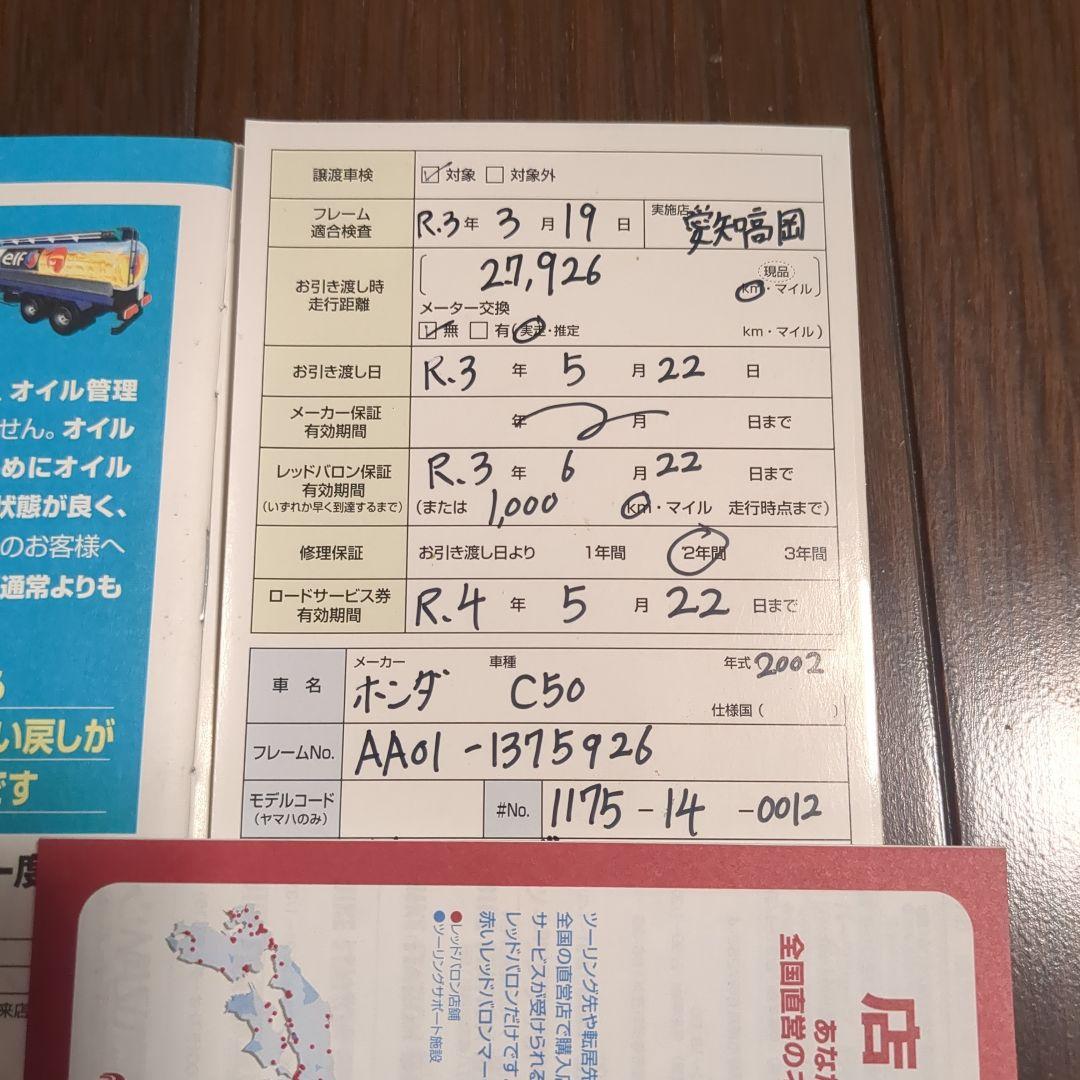 elf
オイル管理
せん。オイル
めにオイル
状態が良く、
のお客様へ
通常よりも
い戻しが
です
一度
来店
譲渡車検 ☑対象 □対象外
フレーム適合検査 R.3年 3月19日 実施店 愛知高岡
お引き渡し時走行距離 ( 27,926 現品 km・マイル )
メーター交換
☑無 □有(実走・推定 km・マイル)
お引き渡し日 R.3年 5月22日
メーカー保証有効期間 年 月 日まで
レッドバロン保証有効期間 R.3年 6月22日まで
(いずれか早く到達するまで) (または 1,000 km・マイル 走行時点まで)
修理保証 お引き渡し日より 1年間 2年間 3年間
ロードサービス券有効期間 R.4年 5月22日まで
車名 メーカー 車種 年式 2002
ホンダ C50 仕様国( )
フレームNo. AA01-1375926
モデルコード(ヤマハのみ) #No. 1175-14-0012
店
あな
全国直営の
ツーリング先や転居先
全国の直営店で購入
サービスが受けられる
レッドバロンだけです
赤いレッドバロンマー
●レッドバロン店舗
●ツーリングサポート施設